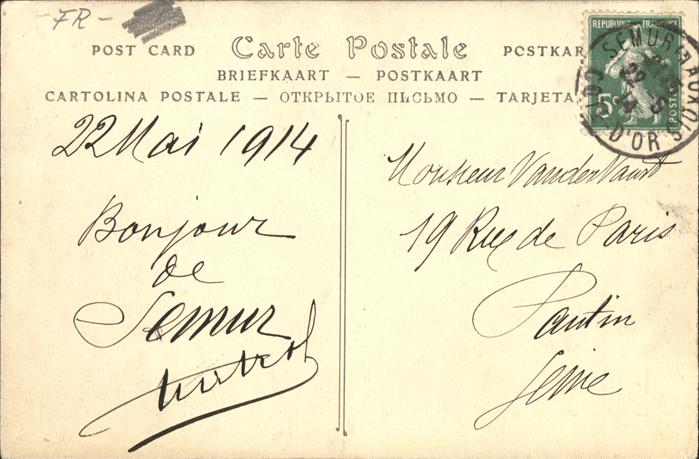 FR-
POST CARD Carte Postale POSTKAR
BRIEFKAART — POSTKAART
CARTOLINA POSTALE — ОТКРЫТОЕ ПИСЬМО — TARJETA
REPUBLIQUE FRANÇAISE
5c POSTES
SEMUR
COTE D'OR
22 Mai 1914
Bonjour
de
Semur
Monsieur Vander Vaart
19 Rue de Paris
Pantin
Seine